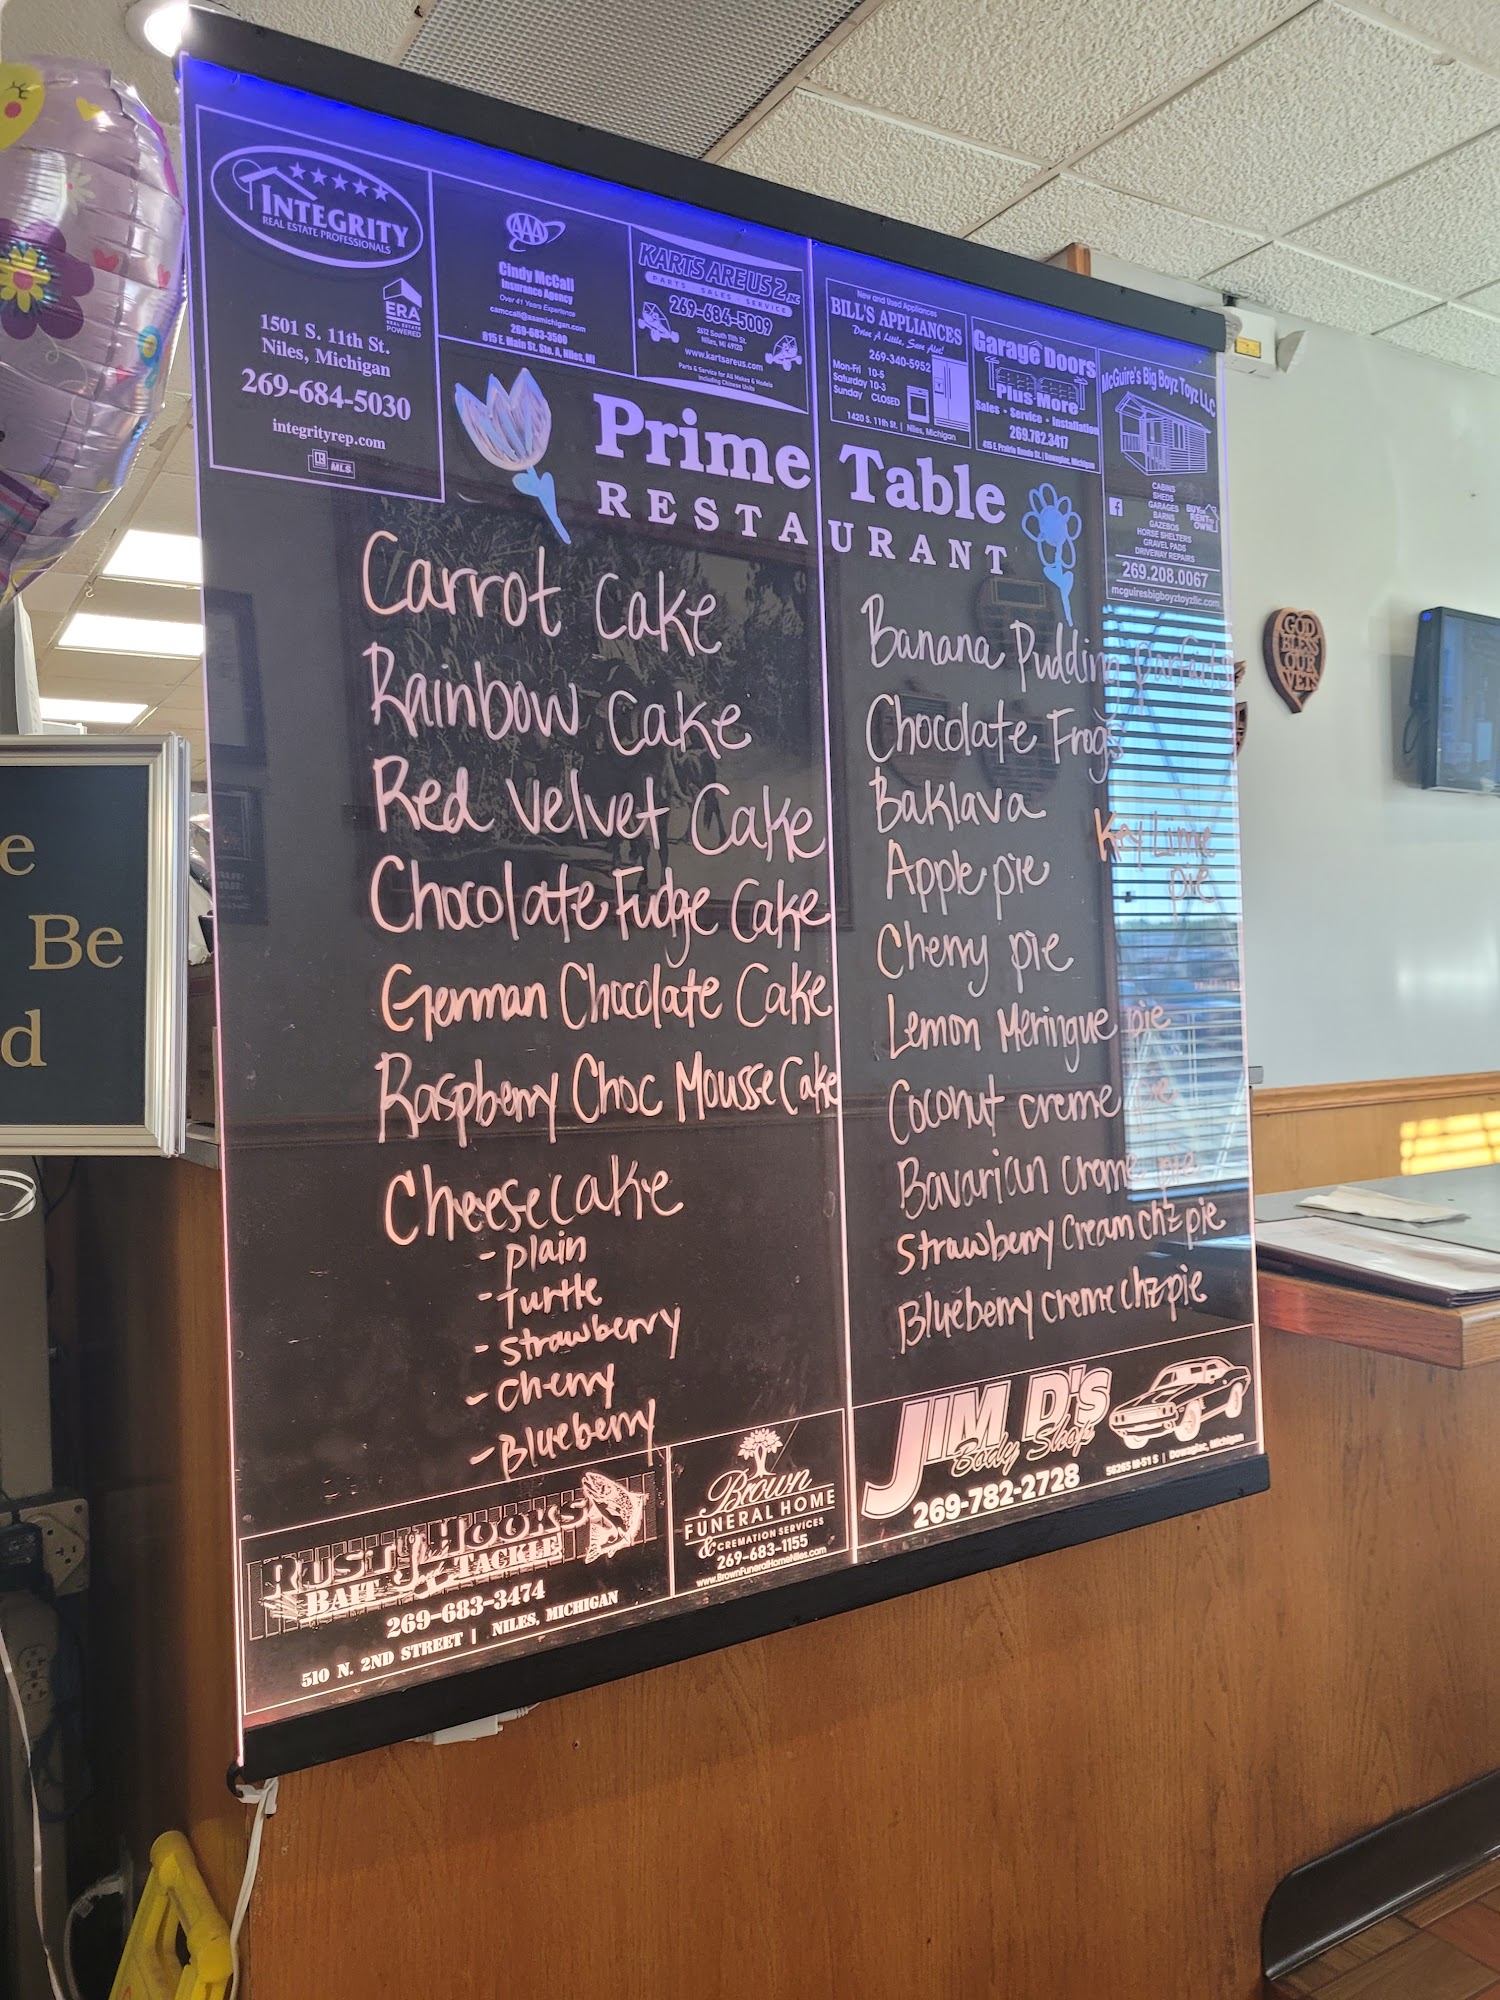 INTEGRITY
REAL ESTATE PROFESSIONALS
ERA
REAL ESTATE
POWERED
1501 S. 11th St.
Niles, Michigan
269-684-5030
integrityrep.com
R MLS
AAA
Cindy McCall
Insurance Agency
Over 41 Years Experience
camccall@aaamichigan.com
269-683-3500
815 E. Main St. Ste. A, Niles, MI
KARTS ARE US 2
PARTS · SALES · SERVICE
269-684-5009
2612 South 11th St.
Niles, MI 49120
www.kartsareus.com
Parts & Service for All Makes & Models
Including Chinese Units
New and Used Appliances
BILL'S APPLIANCES
Drive A Little, Save Alot!
269-340-5952
Mon-Fri 10-5
Saturday 10-3
Sunday CLOSED
1420 S. 11th St. | Niles, Michigan
Garage Doors
Plus More
Sales • Service • Installation
269.782.3417
415 E. Prairie Ronde St. | Dowagiac, Michigan
McGuire's Big Boyz Toyz LLC
CABINS
SHEDS
GARAGES
BARNS
GAZEBOS
HORSE SHELTERS
GRAVEL PADS
DRIVEWAY REPAIRS
f
BUY
RENT TO
OWN
269.208.0067
mcguiresbigboyztoyzllc.com
Prime Table
RESTAURANT
Carrot Cake
Rainbow Cake
Red Velvet Cake
Chocolate Fudge Cake
German Chocolate Cake
Raspberry Choc Mousse Cake
Cheesecake
- plain
- Turtle
- Strawberry
- Cherry
- Blueberry
Banana Pudding parfaits
Chocolate Frogs
Baklava
Apple pie
Key Lime
pie
Cherry pie
Lemon Meringue pie
Coconut creme pie
Bavarian creme pie
Strawberry Cream chz pie
Blueberry creme chz pie
RUSTY HOOKS
BAIT & TACKLE
269-683-3474
510 N. 2ND STREET | NILES, MICHIGAN
Brown
FUNERAL HOME
& CREMATION SERVICES
269-683-1155
www.BrownFuneralHomeNiles.com
JIM D's
Body Shop
269-782-2728
56265 M-51 S | Dowagiac, Michigan
GOD
BLESS
OUR
VETS
e
Be
d